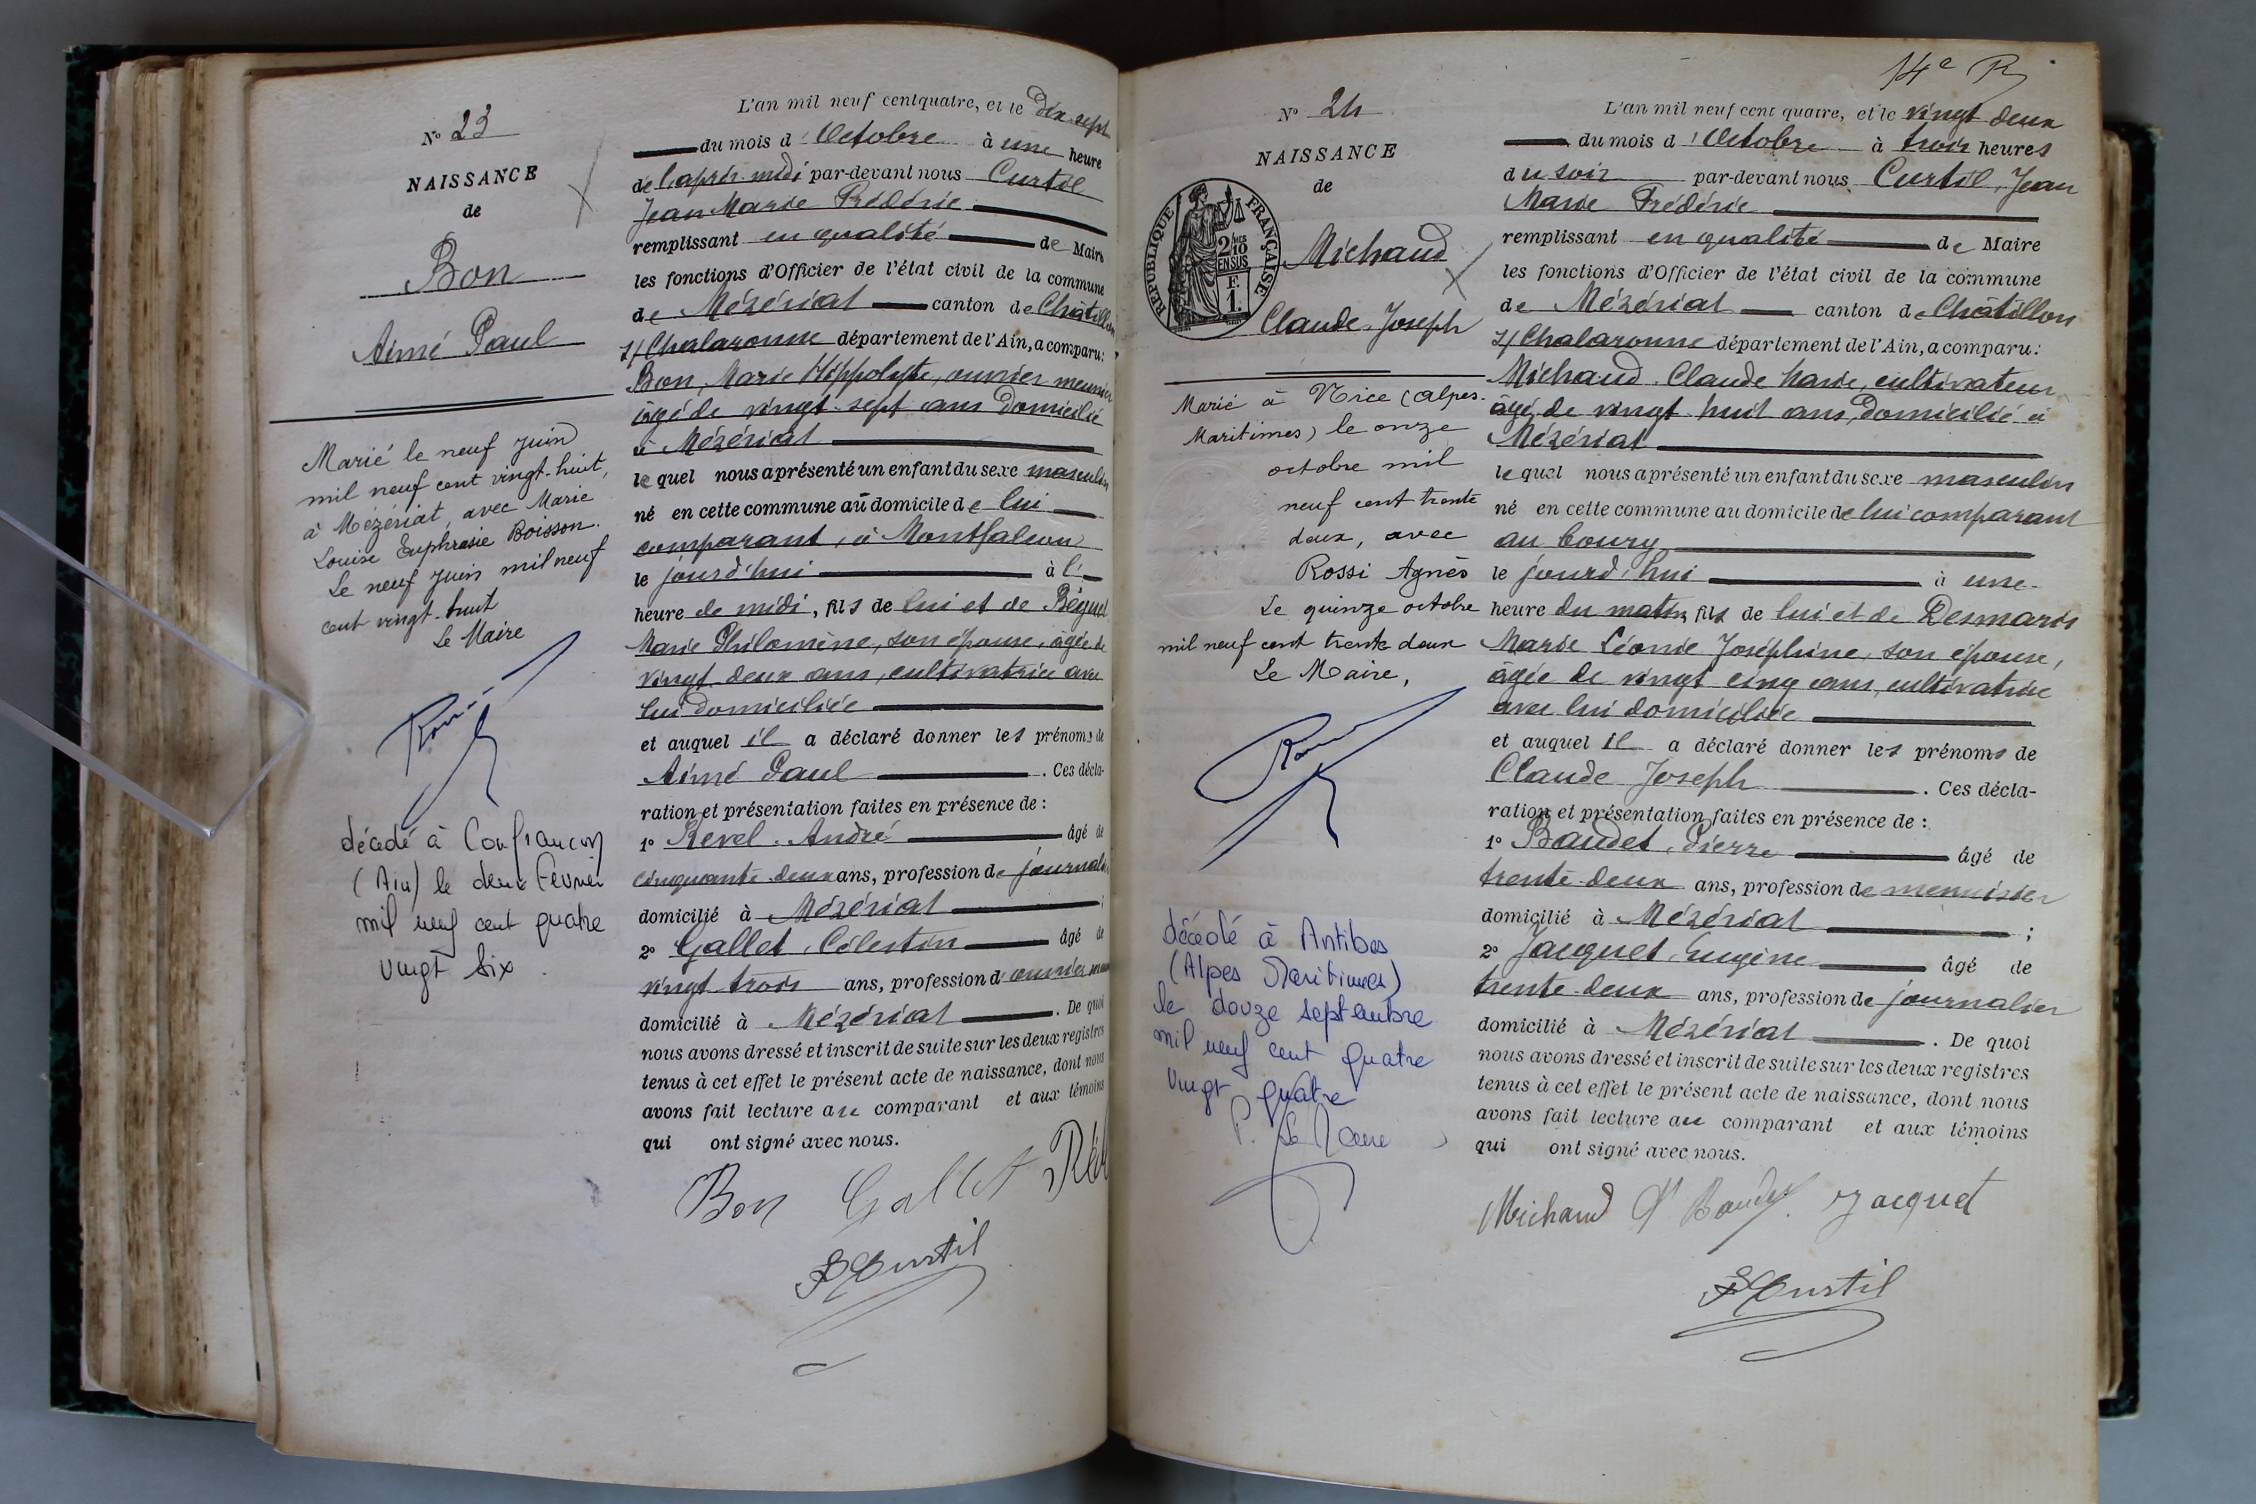 Nº 23
NAISSANCE
de
Bon
Aimé Paul
Marié le neuf juin
mil neuf cent vingt-huit,
à Mézériat, avec Marie
Louise Euphrasie Boisson.
Le neuf juin mil neuf
cent vingt-huit
Le Maire
décédé à Confrançon
(Ain) le deux Février
mil neuf cent quatre
vingt six
L'an mil neuf cent quatre, et le dix-sept
du mois d'Octobre à une heure
de l'après-midi par-devant nous Curtil
Jean Marie Frédéric
remplissant en qualité de Maire
les fonctions d'Officier de l'état civil de la commune
de Mézériat canton de Châtillon
s/ Chalaronne département de l'Ain, a comparu:
Bon, Marie Hippolyte, ouvrier meunier
âgé de vingt-sept ans domicilié
à Mézériat
lequel nous a présenté un enfant du sexe masculin
né en cette commune au domicile de lui
comparant, à Montfalcon
le jourd'hui à l'
heure de midi, fils de lui et de Béguet
Marie Philomène, son épouse, âgée de
vingt-deux ans, cultivatrice avec
lui domiciliée
et auquel il a déclaré donner les prénoms de
Aimé Paul . Ces décla-
ration et présentation faites en présence de :
1º Revel, André âgé de
cinquante-deux ans, profession de journalier
domicilié à Mézériat ;
2º Gallet, Célestin âgé de
vingt-trois ans, profession d'ouvrier
domicilié à Mézériat . De quoi
nous avons dressé et inscrit de suite sur les deux registres
tenus à cet effet le présent acte de naissance, dont nous
avons fait lecture au comparant et aux témoins
qui ont signé avec nous.
Bon Gallet
F Curtil
14e R
Nº 24
NAISSANCE
de
RÉPUBLIQUE FRANÇAISE
2/10 EN SUS
F. 1.
Michaud
Claude-Joseph
Marié à Nice (Alpes-
Maritimes) le onze
octobre mil
neuf cent trente
deux, avec
Rossi Agnès
Le quinze octobre
mil neuf cent trente deux
Le Maire,
décédé à Antibes
(Alpes Maritimes)
le douze septembre
mil neuf cent quatre
vingt quatre
P. Le Maire
L'an mil neuf cent quatre, et le vingt deux
du mois d'Octobre à trois heures
du soir par-devant nous Curtil, Jean
Marie Frédéric
remplissant en qualité de Maire
les fonctions d'Officier de l'état civil de la commune
de Mézériat canton de Châtillon
s/ Chalaronne département de l'Ain, a comparu:
Michaud, Claude Marie, cultivateur,
âgé de vingt-huit ans, domicilié à
Mézériat
lequel nous a présenté un enfant du sexe masculin
né en cette commune au domicile de lui comparant
au bourg
le jourd'hui à une
heure du matin, fils de lui et de Desmaris
Marie Léonie Joséphine, son épouse,
âgée de vingt cinq ans, cultivatrice
avec lui domiciliée
et auquel il a déclaré donner les prénoms de
Claude Joseph . Ces décla-
ration et présentation faites en présence de :
1º Baudet, Pierre âgé de
trente-deux ans, profession de menuisier
domicilié à Mézériat ;
2º Jacquet, Eugène âgé de
trente-deux ans, profession de journalier
domicilié à Mézériat . De quoi
nous avons dressé et inscrit de suite sur les deux registres
tenus à cet effet le présent acte de naissance, dont nous
avons fait lecture au comparant et aux témoins
qui ont signé avec nous.
Michaud P Baudet Jacquet
F Curtil